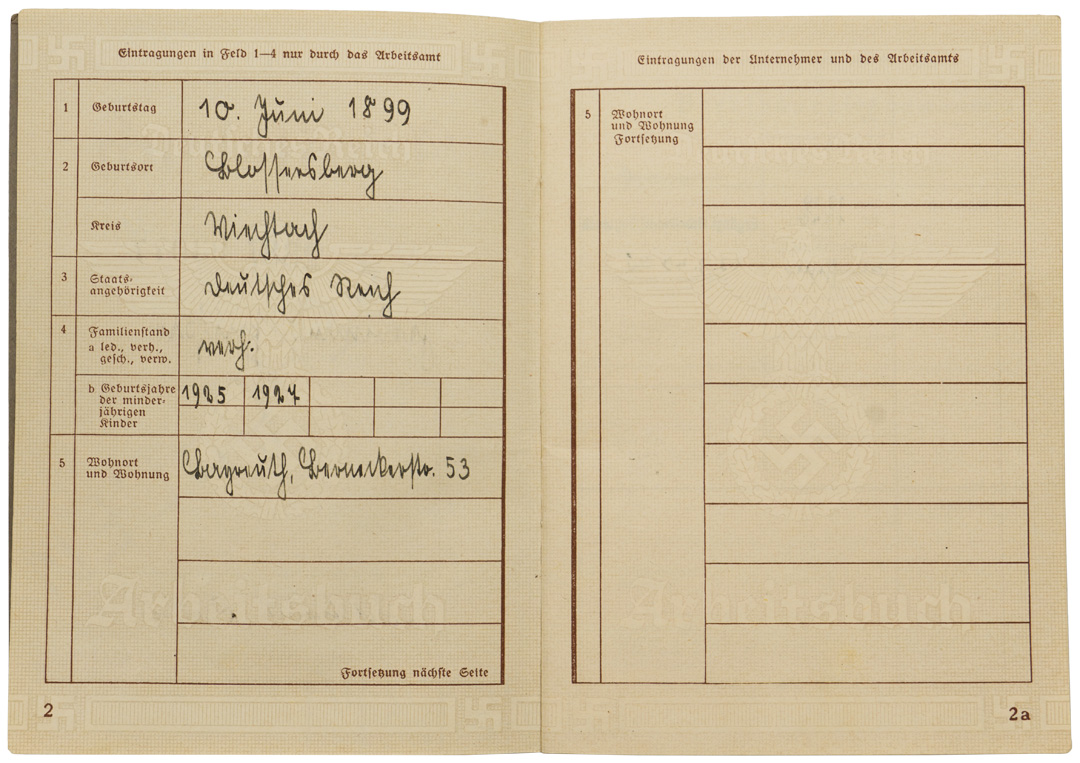 Eintragungen in Feld 1—4 nur durch das Arbeitsamt
1 Geburtstag 10. Juni 1899
2 Geburtsort Blossersberg
Kreis Viechtach
3 Staats-
angehörigkeit Deutsches Reich
4 Familienstand
a led., verh.,
gesch., verw. verh.
b Geburtsjahre 1925 1927
der minder-
jährigen
Kinder
5 Wohnort
und Wohnung Bayreuth, Berneckerstr. 53
Fortsetzung nächste Seite
2
Eintragungen der Unternehmer und des Arbeitsamts
5 Wohnort
und Wohnung
Fortsetzung
2a
Deutsches Reich
Arbeitsbuch
Arbeitsbuch